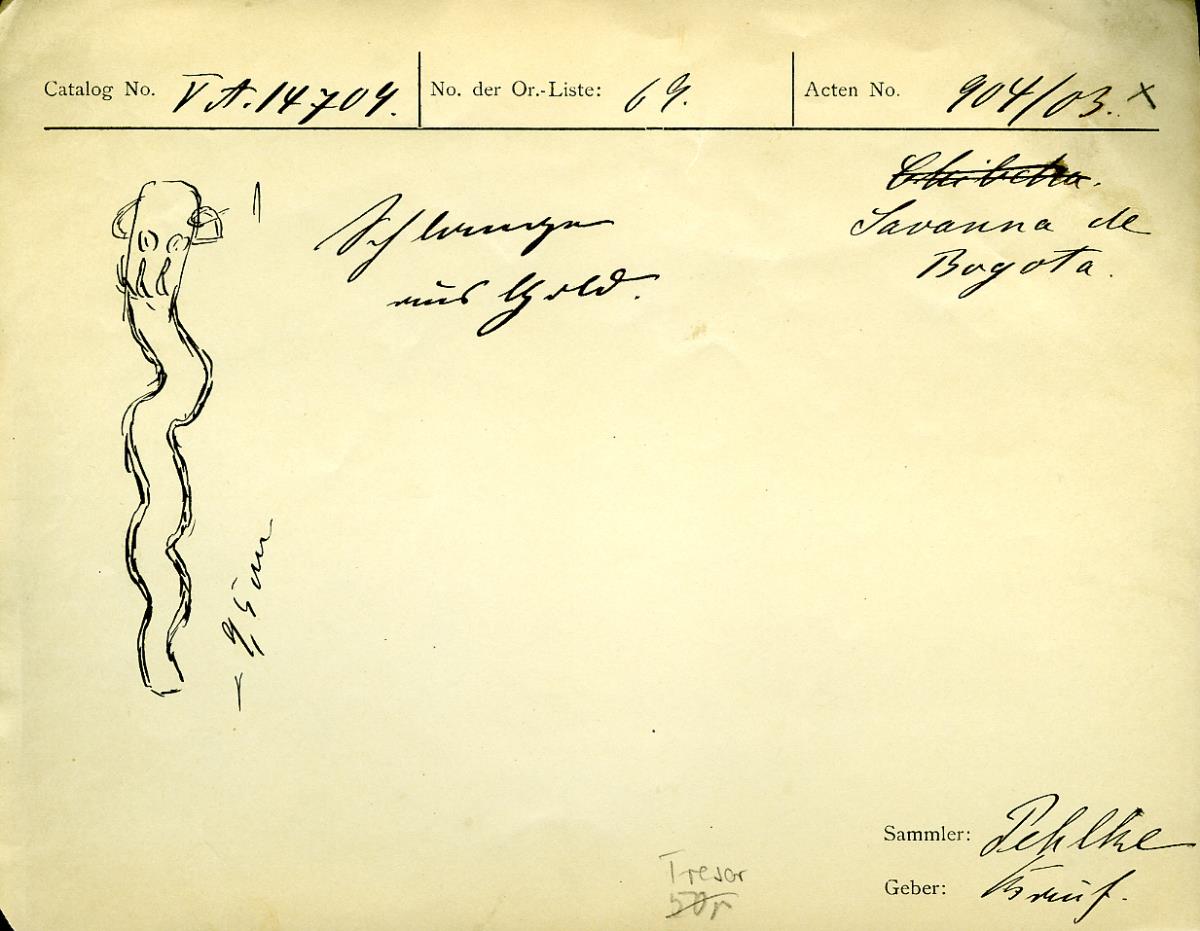 Catalog No. V A. 14704. No. der Or.-Liste: 69. Acten No. 904/03. x
Chibcha.
Savanna de
Bogota.
Schlange
aus Gold.
9,5 cm
Sammler: Pehlke
Geber: Kauf.
Tresor